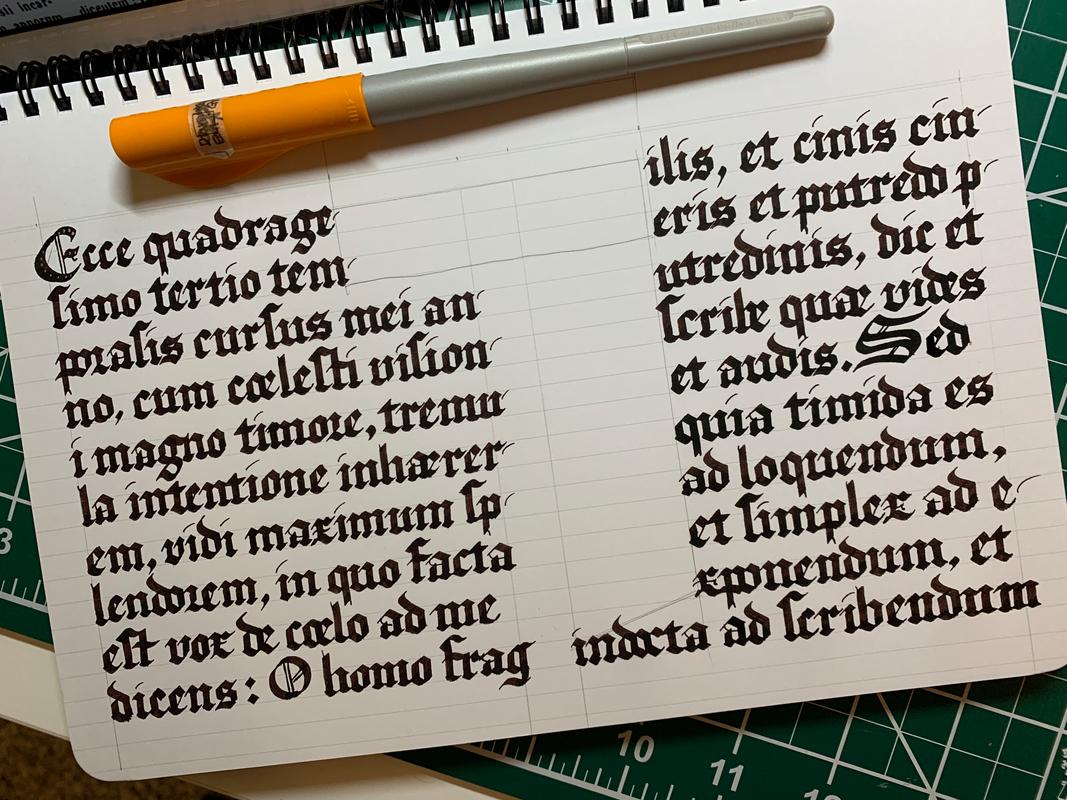 Ecce quadrage
ſimo tertio tem
pralis curſus mei an
no, cum cœleſti viſion
i magno timore, tremu
la intentione inhærer
em, vidi maximum ſp
lendorem, in quo facta
eſt vox de cœlo ad me
dicens: O homo frag
ilis, et cinis cin
eris et putredo p
utredinis, dic et
ſcribe quæ vides
et audis. Sed
quia timida es
ad loquendum,
et ſimplex ad e
xponendum, et
indocta ad ſcribendum
3
10
11